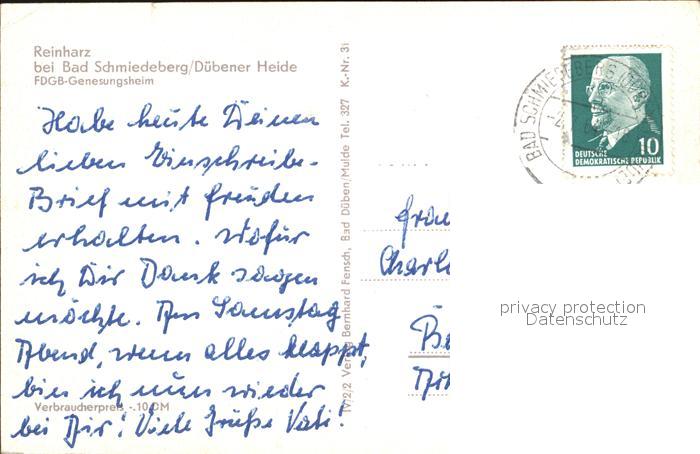 Reinharz
bei Bad Schmiedeberg/Dübener Heide
FDGB-Genesungsheim
Habe heute Deinen
lieben Einschreibe-
Brief mit freuden
erhalten. Wofür
ich Dir Dank sagen
möchte. Am Samstag
Abend, wenn alles klappt,
bin ich nun wieder
bei Dir! Viele Grüße Vati!
Verbraucherpreis -.10 DM
IV/2/2 Verlag Bernhard Fensch, Bad Düben/Mulde Tel. 327 K.-Nr. 31
BAD SCHMIEDEBERG
10
DEUTSCHE
DEMOKRATISCHE REPUBLIK
Frau
Charl
Be
privacy protection
Datenschutz